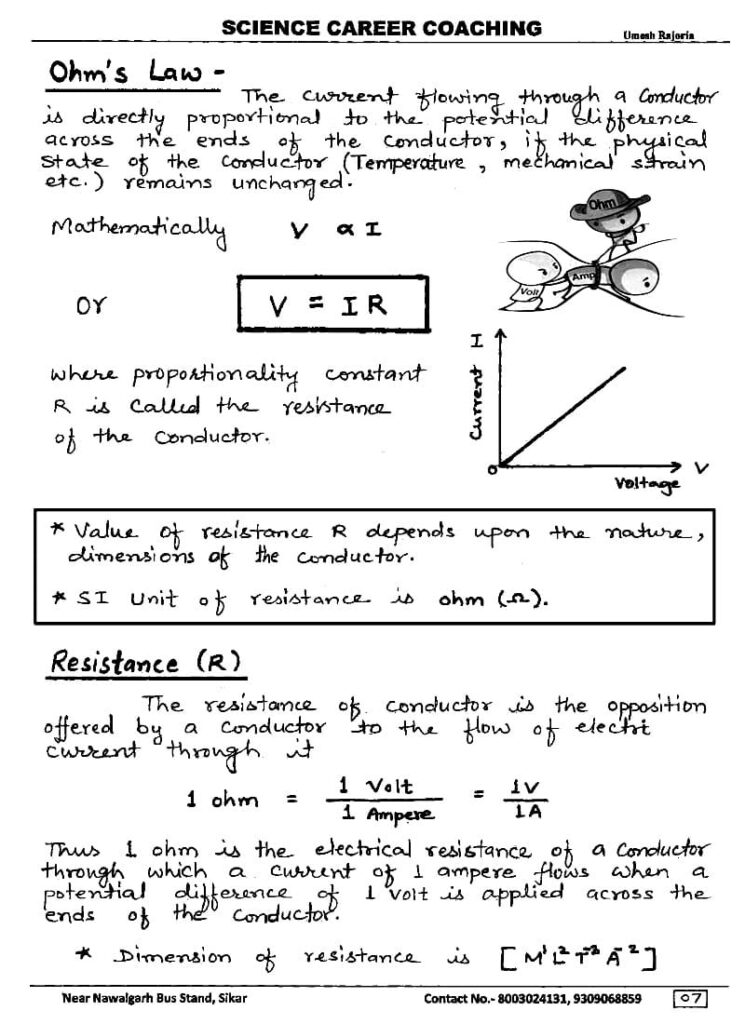 SCIENCE CAREER COACHING
Umesh Rajoria
Ohm's Law -
The current flowing through a conductor
is directly proportional to the potential difference
across the ends of the conductor, if the physical
state of the conductor (Temperature, mechanical strain
etc.) remains unchanged.
Mathematically V ∝ I
Ohm
Volt
Amp
or V = IR
where proportionality constant
R is called the resistance
of the conductor.
Current I
O
V
Voltage
* Value of resistance R depends upon the nature,
dimensions of the conductor.
* SI Unit of resistance is ohm (Ω).
Resistance (R)
The resistance of conductor is the opposition
offered by a conductor to the flow of electric
current through it
1 ohm = 1 Volt / 1 Ampere = 1V / 1A
Thus 1 ohm is the electrical resistance of a conductor
through which a current of 1 ampere flows when a
potential difference of 1 volt is applied across the
ends of the conductor.
* Dimension of resistance is [M¹L²T⁻³A⁻²]
Near Nawalgarh Bus Stand, Sikar
Contact No.- 8003024131, 9309068859
07